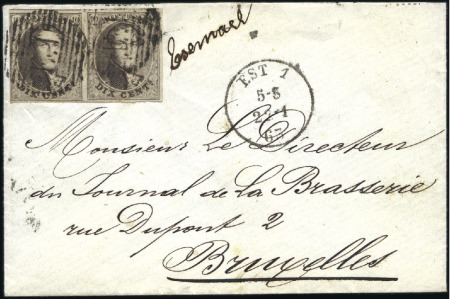 DIX CENTS DIX CENTS
Esemael
EST 1
5-S
Monsieur Le Directeur
du Journal de La Brasserie
rue Dupont 2
Bruxelles